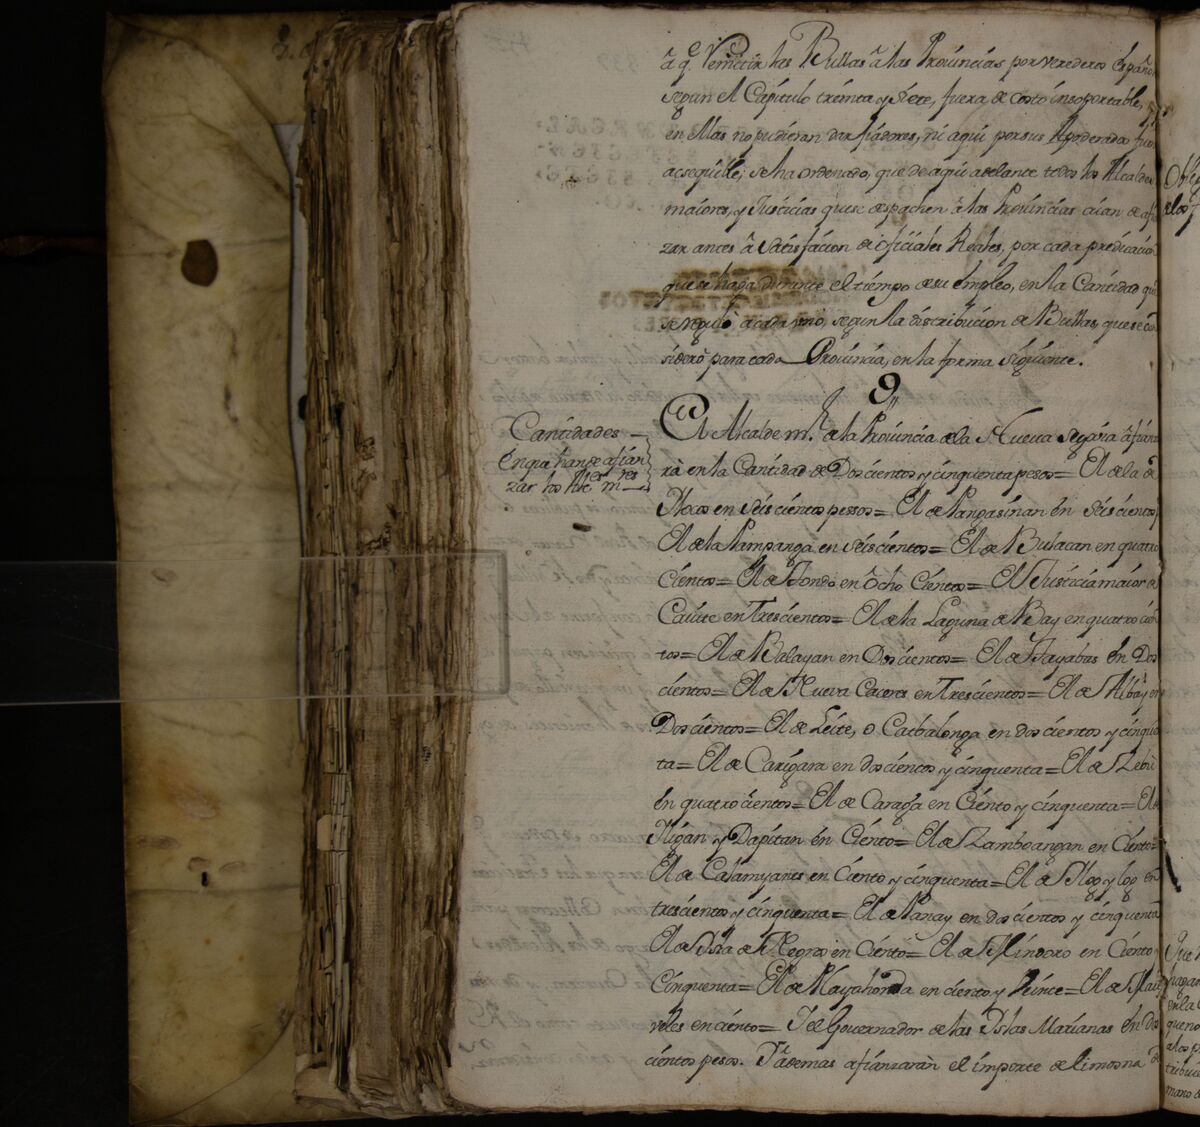 â q.e Remitir las Bullas â las Provincias por veredero españo
segun el Capitulo treinta y siete, fuera de costo insoportable,
en Mas no pudieran dar fiadores, ni aqui por sus Apoderados
acseqüible; se ha ordenado, que de aqui adelante todos los Alcaldes
maiores, y Justicias que se despachen â las Provincias aian de afi
zar antes â satisfacion de oficiales Reales, por cada predicacion
que se haga durante el tiempo de su empleo, en la Cantidad qu
se reguló a cada uno, segun la distribucion de Bullas, que se co
sideró para cada Provincia, en la forma siguiente.
9,,
Cantidades
En que han de afian
zar los Alc.es m.res
El Alcalde m.r de la Provincia de la Nueva Segovia afianza
rà en la Cantidad de Doscientos y cinquenta pesos= El de la de
Ylocos en seiscientos pessos= El de Pangasinan en seiscientos
El de la Pampanga en seiscientos= El de Bulacan en quatro
cientos= El de Tondo en ôcho Cientos= El Justicia maior de
Cauite en Trescientos= El de la Laguna de Bay en quatro cien
tos= El de Balayan en Doscientos= El de Tayabas en Dos
cientos= El de Nueva Caceres en Trescientos= El de Albay en
Doscientos= El de Leite, o Catbalonga en doscientos y cinquen
ta= El de Carigara en doscientos y cinquenta= El de Zebu
en quatrocientos= El de Caraga en Ciento y cinquenta= El
Yligan y Dapitan en Ciento= El de Zamboangan en Ciento=
El de Calamyanes en Ciento y cinquenta= El de Ylog y log en
trescientos y cinquenta= El de Panay en doscientos y cinquenta
El de Ysla de Negros en Ciento= El de Mindoro en Ciento y
Cinquenta= El de Playahonda en ciento y Veinte= El de Mari
veles en ciento= Y el Governador de las Yslas Marianas en Dos
cientos pesos. Y ademas afianzaràn el importe de limosna de